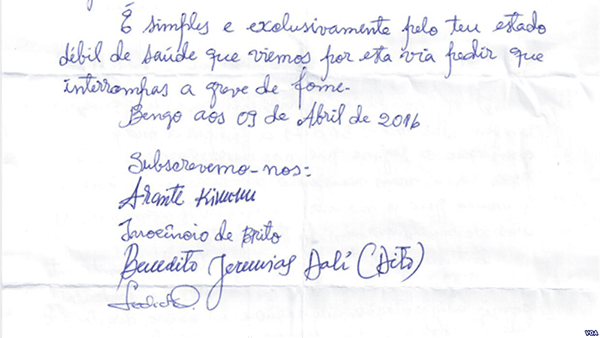 É simples e exclusivamente pelo teu estado
débil de saúde que viemos por esta via pedir que
interrompas a greve de fome.
Bengo aos 09 de Abril de 2016
Subscrevemo-nos:
Arante Kivuvu
Inocêncio de Brito
Benedito Jeremias Dalí (Dito)
VOA